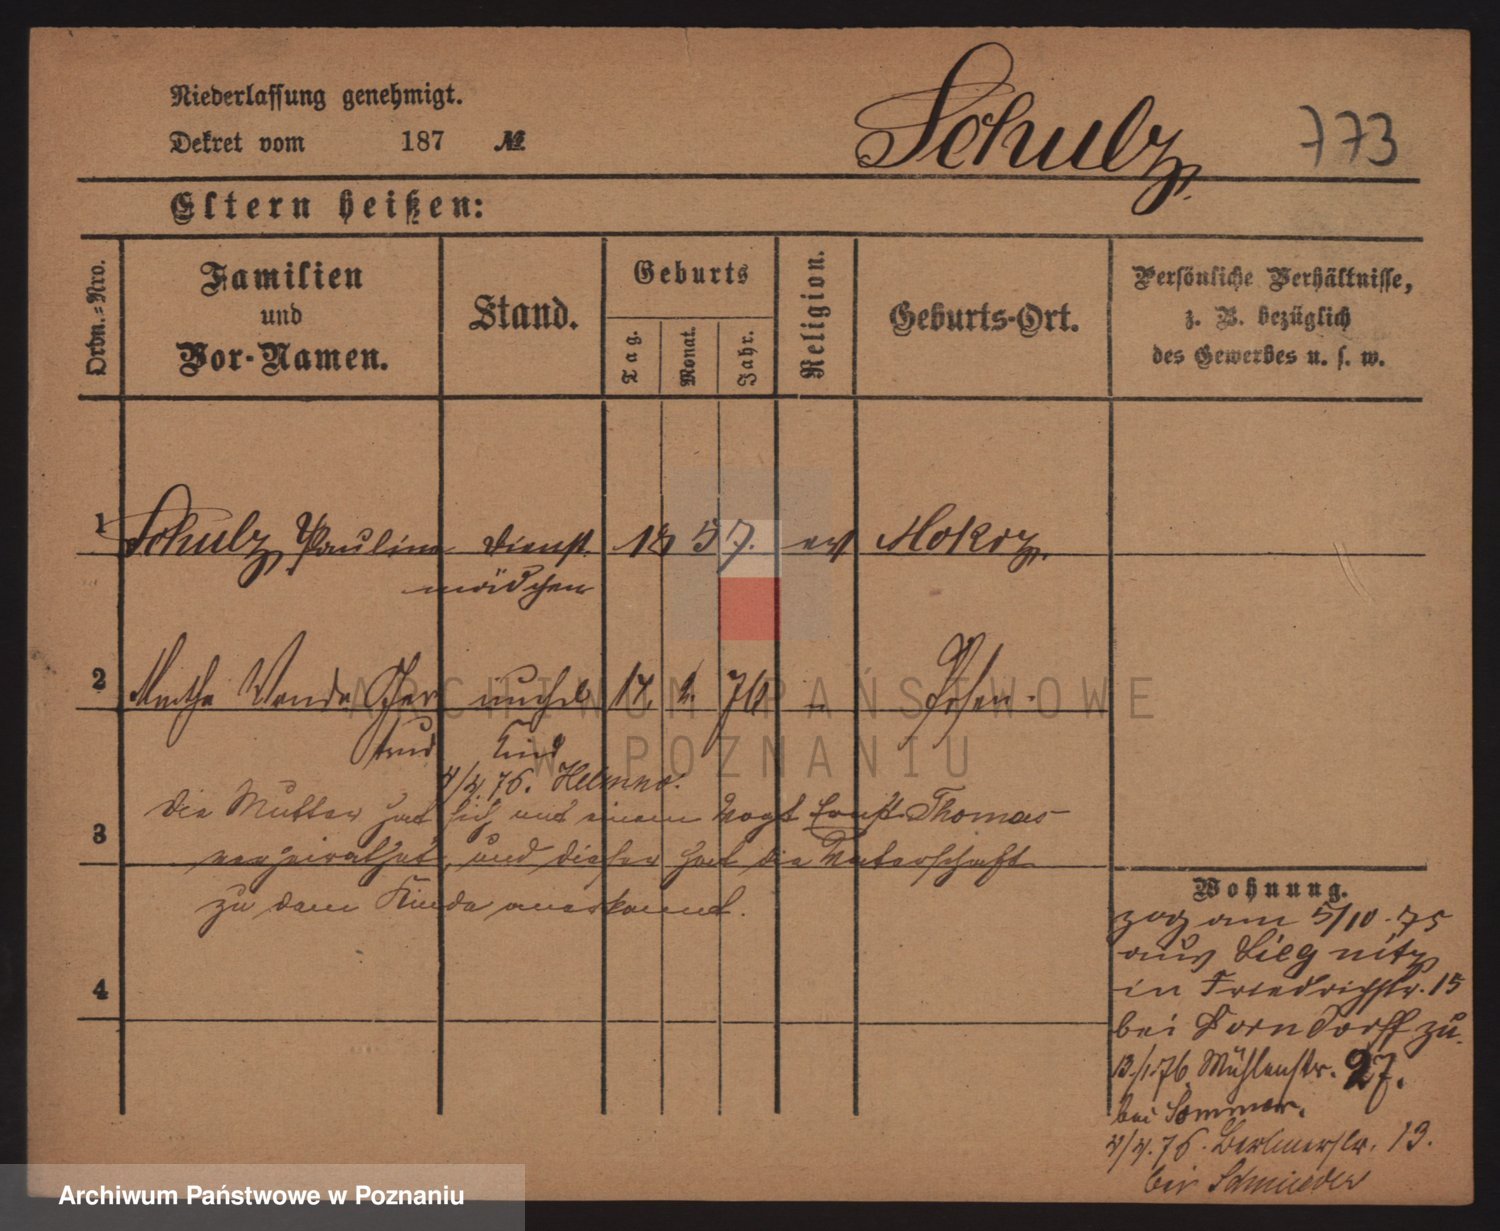 Niederlassung genehmigt.
Dekret vom 187 №
Schulz
773
Eltern heißen:
Ordn.-Nro.
Familien
und
Vor-Namen.
Stand.
Geburts
Tag.
Monat.
Jahr.
Religion.
Geburts-Ort.
Persönliche Verhältnisse,
z. B. bezüglich
des Gewerbes u. s. w.
1 Schulz, Pauline Dienst 1857. ev Mokrz.
mädchen
2 Martha Wanda Ger unehel 17. 1. 76 " Posen.
trud Kind
4/4. 76.
Die Mutter hat sich mit einem Vogt Ernst Thomas
3
verheirathet, und dieser hat die Vaterschaft
zu dem Kinde anerkannt.
4
Wohnung.
zog am 5/10. 75
aus Liegnitz
in Friedrichstr. 15
bei Dorndorff zu.
13./1.76. Mühlenstr. 27.
bei Sommer.
4/4. 76. Berlinerstr. 13.
bei Schmieder
ARCHIWUM PAŃSTWOWE
W POZNANIU
Archiwum Państwowe w Poznaniu